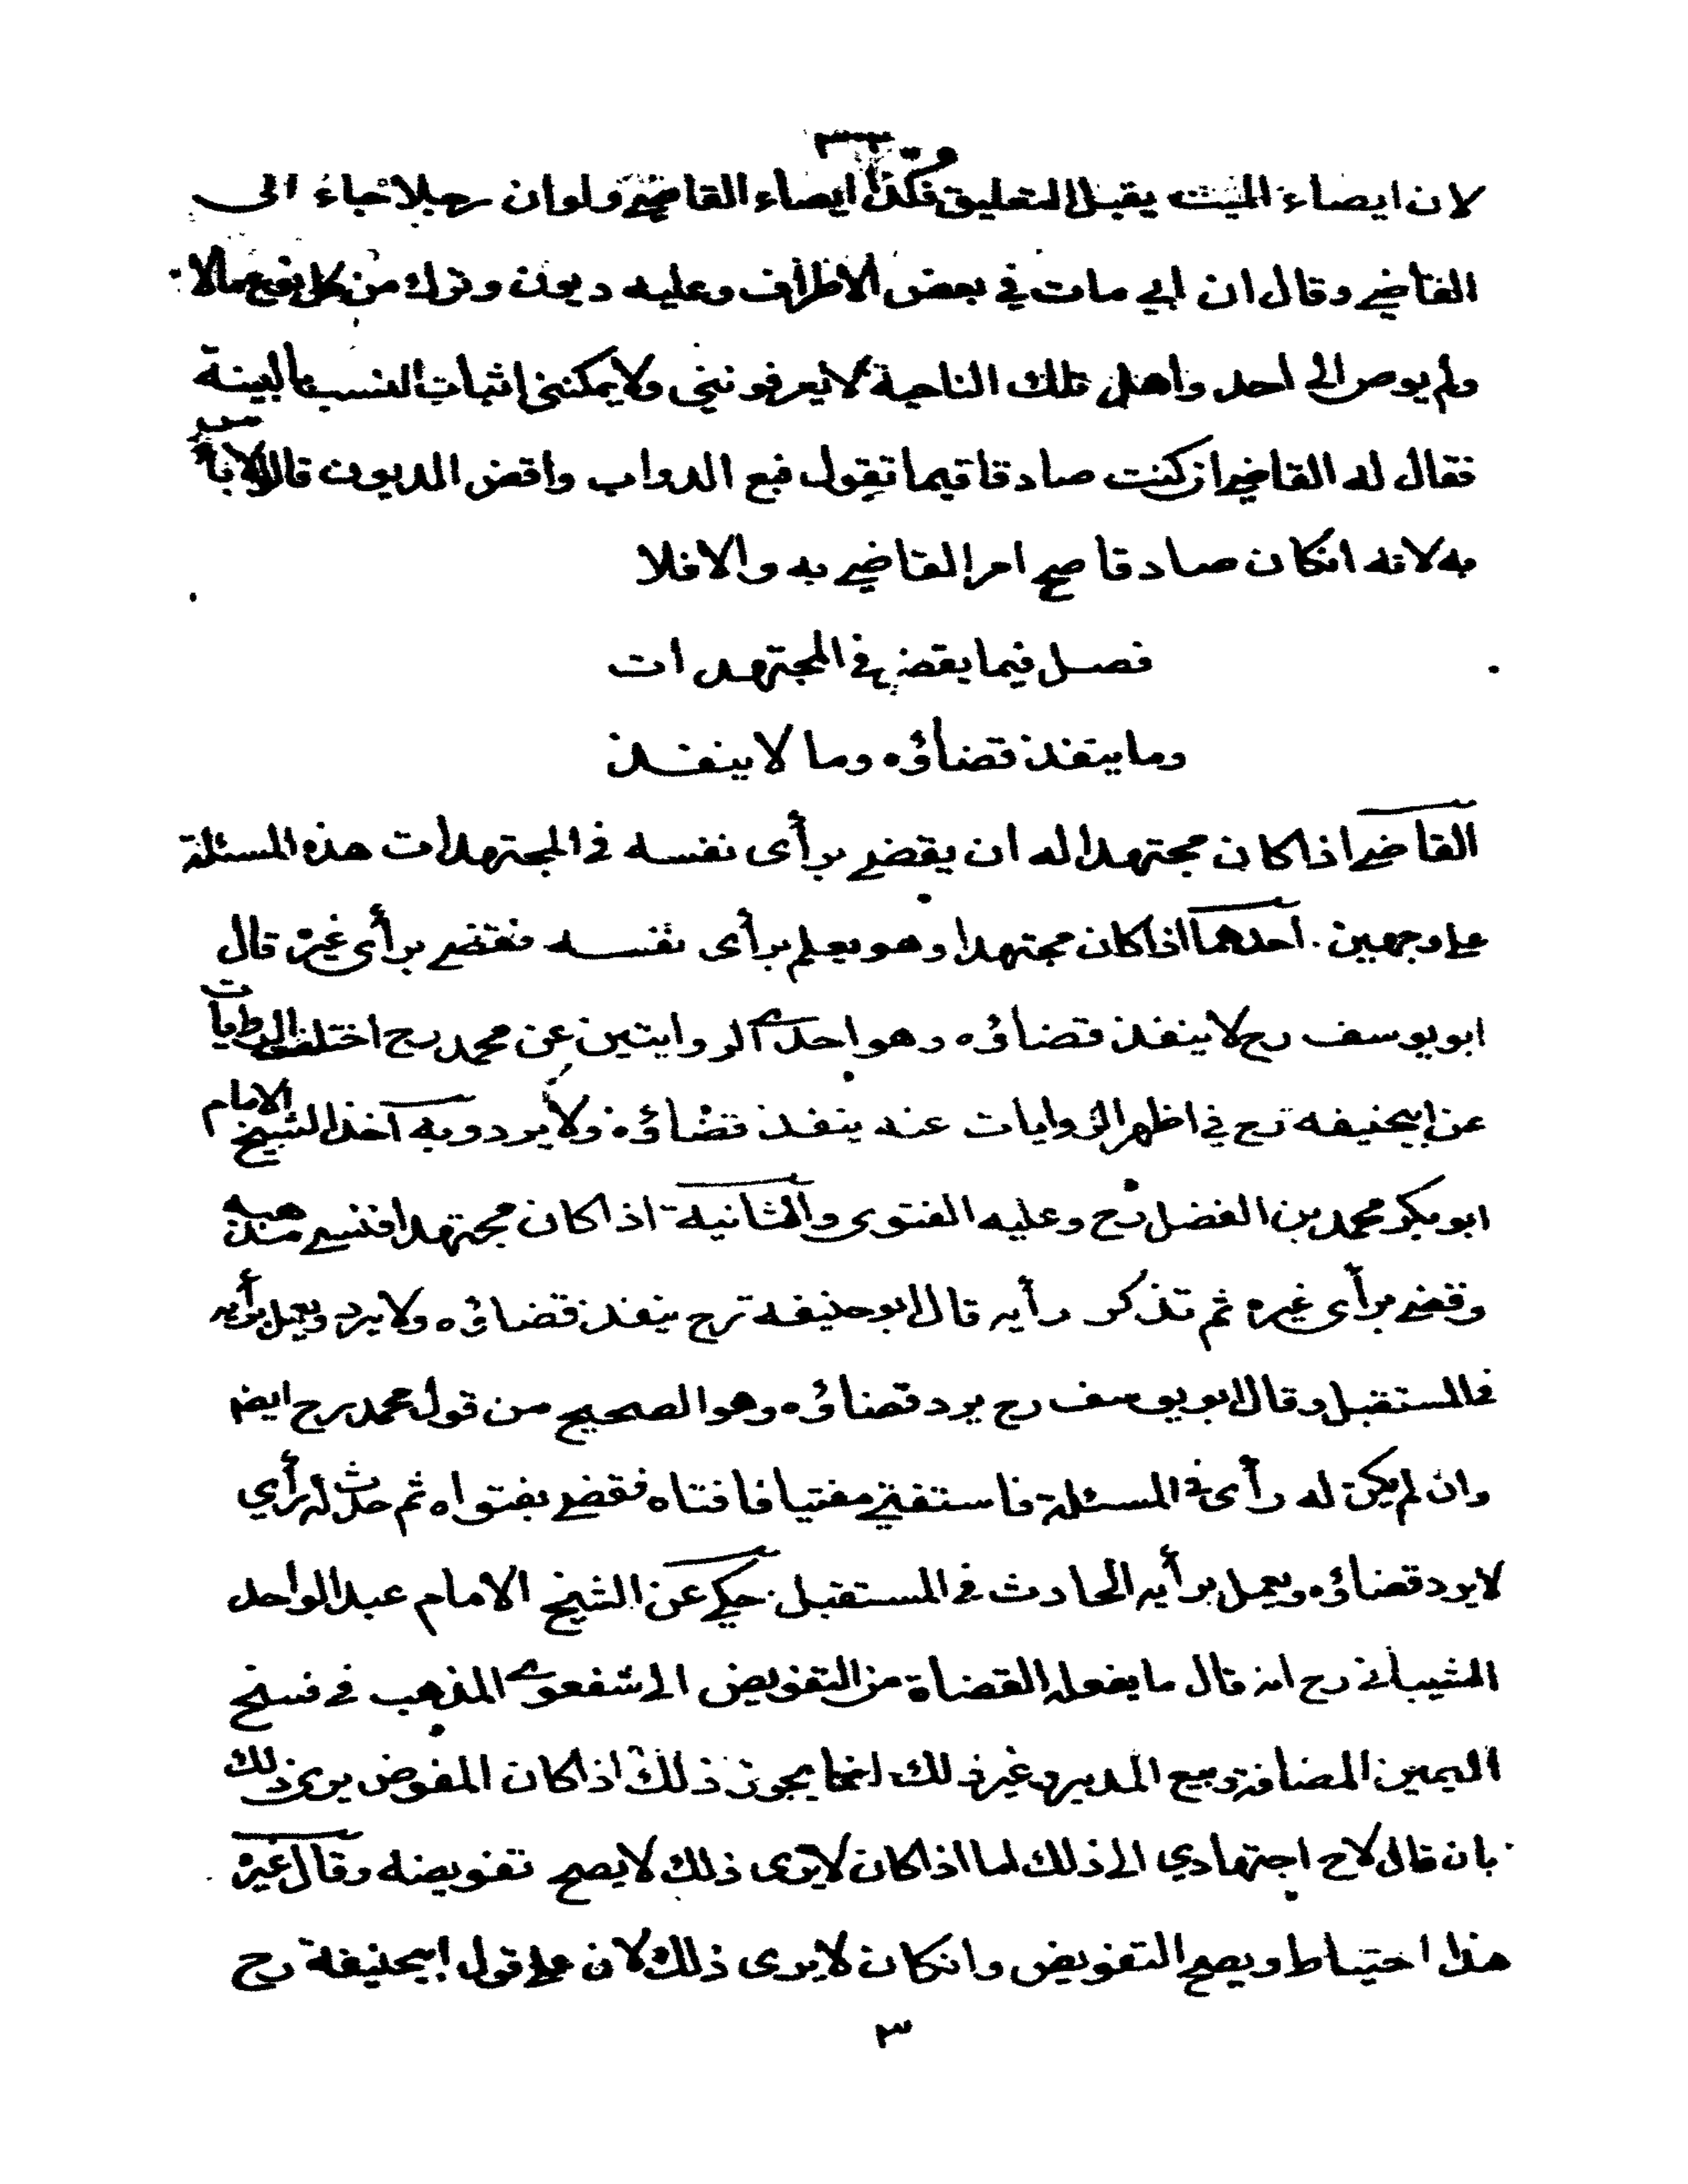 لان ايصاء الميت يقبل التعليق فكذا ايصاء القاضي ولو ان رجلا جاء الى
القاضي وقال ان ابي مات في بعض الاطراف وعليه ديون وترك من كل نوع مالا
ولم يوص الى احد واهل تلك الناحية لا يعرفونني ولا يمكنني اثبات النسب بالبينة
فقال له القاضي ان كنت صادقا فيما تقول فبع الدواب واقض الديون قالوا لا بأس
به لانه انكان صادقا صح امر القاضي به والا فلا
فصل فيما يقضي في المجتهدات
وما ينفذ قضاؤه وما لا ينفذ
القاضي اذا كان مجتهدا له ان يقضي برأى نفسه في المجتهدات هذه المسئلة
على وجهين احدهما اذا كان مجتهدا وهو يعلم برأى نفسه فقضى برأى غيره قال
ابو يوسف رح لا ينفذ قضاؤه وهو احدى الروايتين عن محمد رح اختلفت الروايات
عن ابيحنيفه رح في اظهر الروايات عنه ينفذ قضاؤه ولا يرد وبه اخذ الشيخ الامام
ابو بكر محمد بن الفضل رح وعليه الفتوى والثانية اذا كان مجتهدا فنسي مذهبه
وقضى برأى غيره ثم تذكر رأيه قال ابو حنيفة رح ينفذ قضاؤه ولا يرد ويعمل برأيه
في المستقبل وقال ابو يوسف رح يرد قضاؤه وهو الصحيح من قول محمد رح ايضا
وان لم يكن له رأى في المسئلة فاستفتى مفتيا فافتاه فقضى بفتواه ثم حدث له رأي
لا يرد قضاؤه ويعمل برأيه الحادث في المستقبل حكي عن الشيخ الامام عبد الواحد
الشيباني رح انه قال ما يفعله القضاة من التفويض الى شفعوى المذهب في فسخ
اليمين المضافة وبيع المدبر وغير ذلك انما يجوز ذلك اذا كان المفوض يرى ذلك
بان قال لاح اجتهادي الى ذلك اما اذا كان لا يرى ذلك لا يصح تفويضه وقال غيره
هذا احتياط ويصح التفويض وانكان لا يرى ذلك لان على قول ابيحنيفة رح
٣